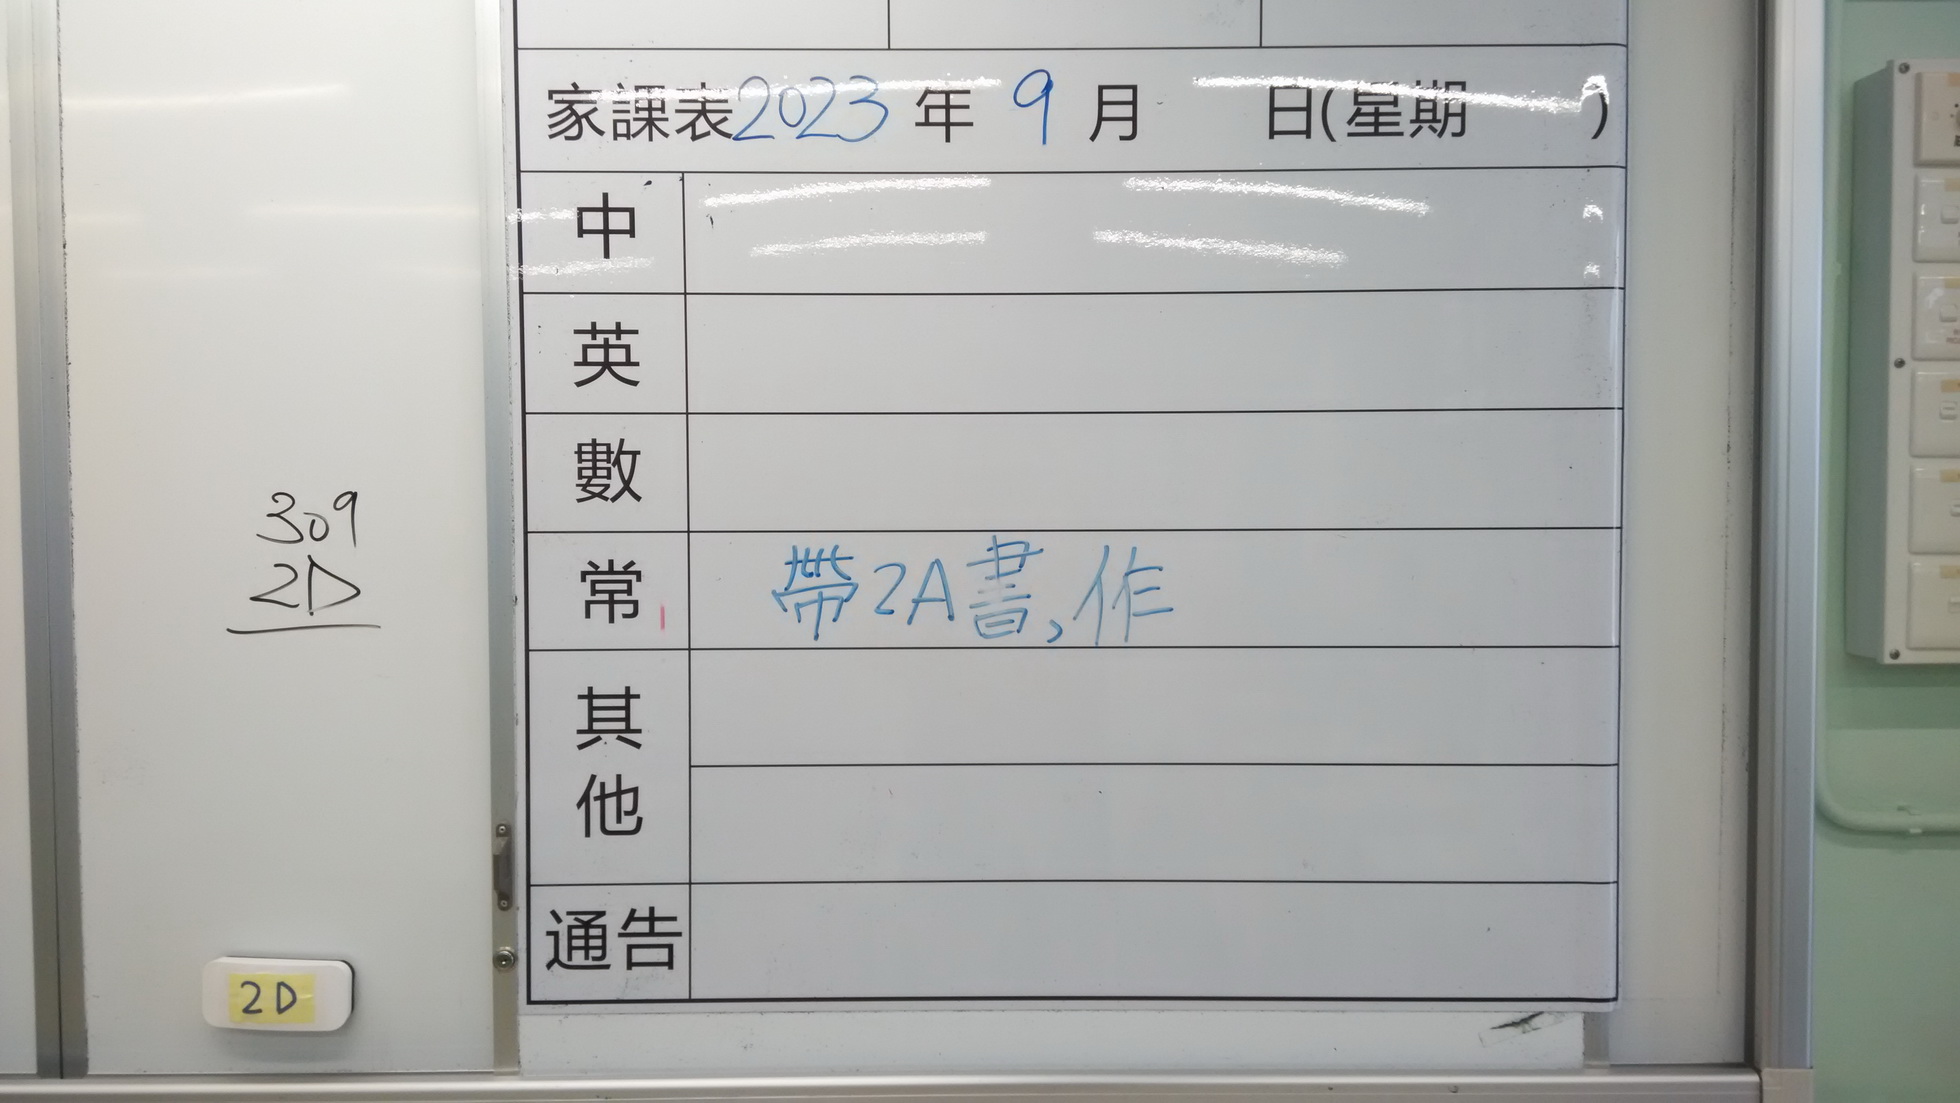 家課表2023年9月 日(星期 )
中
英
數
常 帶2A書,作
其
他
通告
309
2D
2D